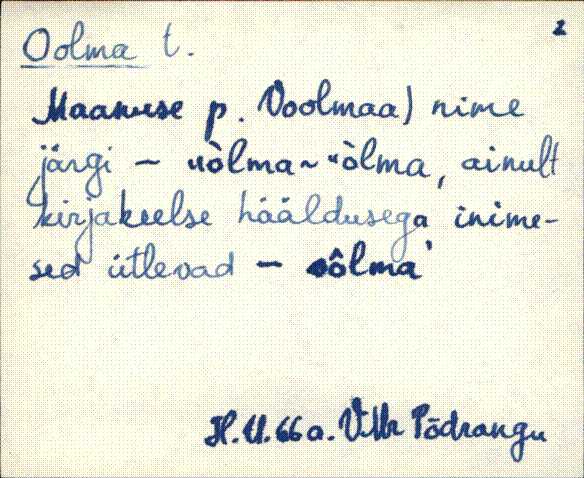 2
Oolma t.
Maanuse p. Voolmaa) nime
järgi – uòlma ~ "òlma, ainult
kirjakeelse hääldusega inime-
sed ütlevad – oôlma'
H.U. 66 a. V.Mr Põdrangu